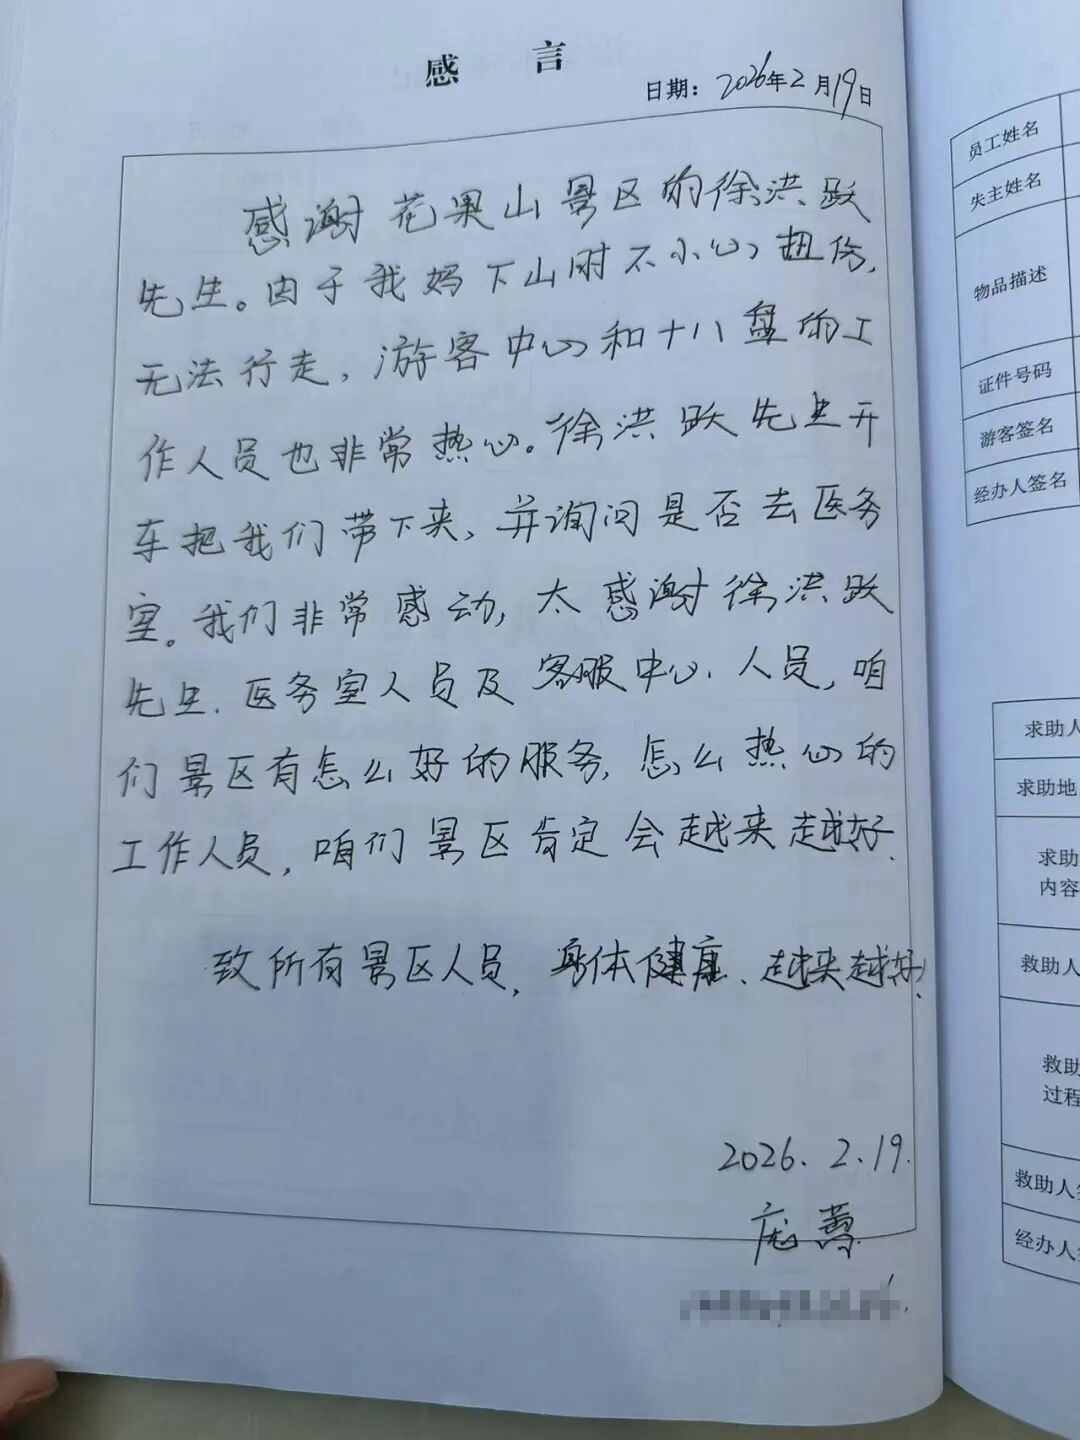 感言
日期：2026年2月19日
感谢花果山景区的徐洪跃
先生。由于我妈下山时不小心扭伤，
无法行走，游客中心和十八盘的工
作人员也非常热心。徐洪跃先生开
车把我们带下来，并询问是否去医务
室。我们非常感动，太感谢徐洪跃
先生、医务室人员及客服中心、人员，咱
们景区有怎么好的服务，怎么热心的
工作人员，咱们景区肯定会越来越好、
致所有景区人员，身体健康、越来越好！
2026.2.19.
员工姓名
失主姓名
物品描述
证件号码
游客签名
经办人签名
求助人
求助地
求助
内容
救助人
救助
过程
救助人
经办人